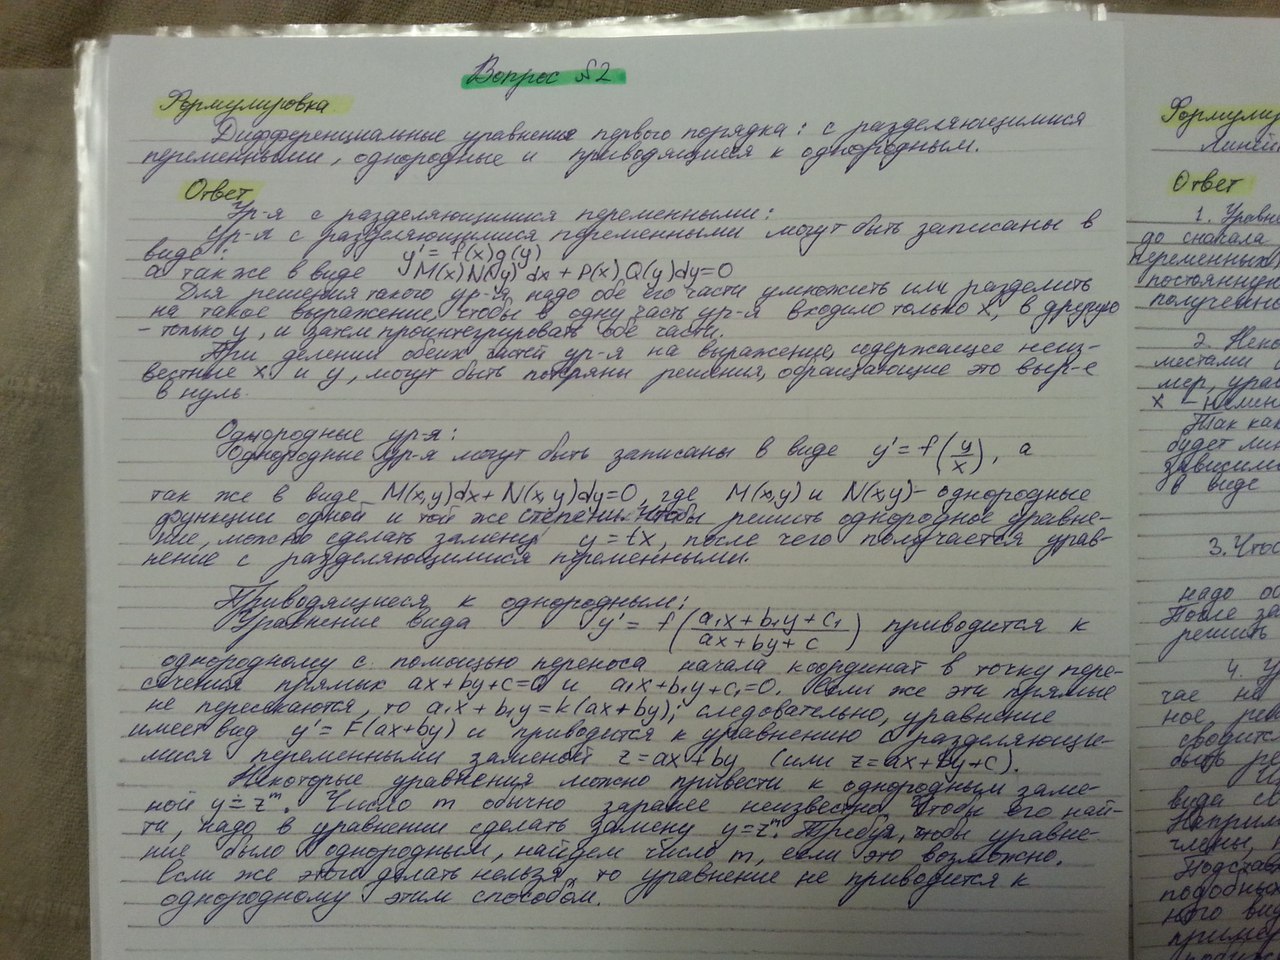 Вопрос №2
Формулировка
Дифференциальные уравнения первого порядка: с разделяющимися
переменными, однородные и приводящиеся к однородным.
Ответ
Ур-я с разделяющимися переменными:
Ур-я с разделяющимися переменными могут быть записаны в
виде: y' = f(x)g(y)
а так же в виде M(x)N(y)dx + P(x)Q(y)dy=0
Для решения такого ур-я надо обе его части умножить или разделить
на такое выражение, чтобы в одну часть ур-я входило только x, в другую
- только y, и затем проинтегрировать обе части.
При делении обеих частей ур-я на выражение, содержащее неиз-
вестные x и y, могут быть потеряны решения, обращающие это выр-е
в нуль.
Однородные ур-я:
Однородные ур-я могут быть записаны в виде y' = f(y/x), а
так же в виде M(x,y)dx + N(x,y)dy=0, где M(x,y) и N(x,y) - однородные
функции одной и той же степени. Чтобы решить однородное уравне-
ние, можно сделать замену y = tx, после чего получается урав-
нение с разделяющимися переменными.
Приводящиеся к однородным:
Уравнение вида y' = f((a₁x + b₁y + c₁)/(ax + by + c)) приводится к
однородному с помощью переноса начала координат в точку пере-
сечения прямых ax+by+c=0 и a₁x+b₁y+c₁=0. Если же эти прямые
не пересекаются, то a₁x + b₁y = k(ax+by); следовательно, уравнение
имеет вид y' = F(ax+by) и приводится к уравнению с разделяющи-
мися переменными заменой z=ax+by (или z=ax+by+c).
Некоторые уравнения можно привести к однородным заме-
ной y=zᵐ. Число m обычно заранее неизвестно. Чтобы его най-
ти, надо в уравнении сделать замену y=zᵐ. Требуя, чтобы уравне-
ние было однородным, найдем число m, если это возможно.
Если же этого делать нельзя, то уравнение не приводится к
однородному этим способом.
Ответ
1. Уравн
до сначала
переменных
2.
местами
x
Так как
будет
в виде
3. Чтоб
надо
После за
решить
4. У
чае на
ное, реш
сводится
быть ре
вида св
Наприм
члены,
Подстав
подобных
ного вид